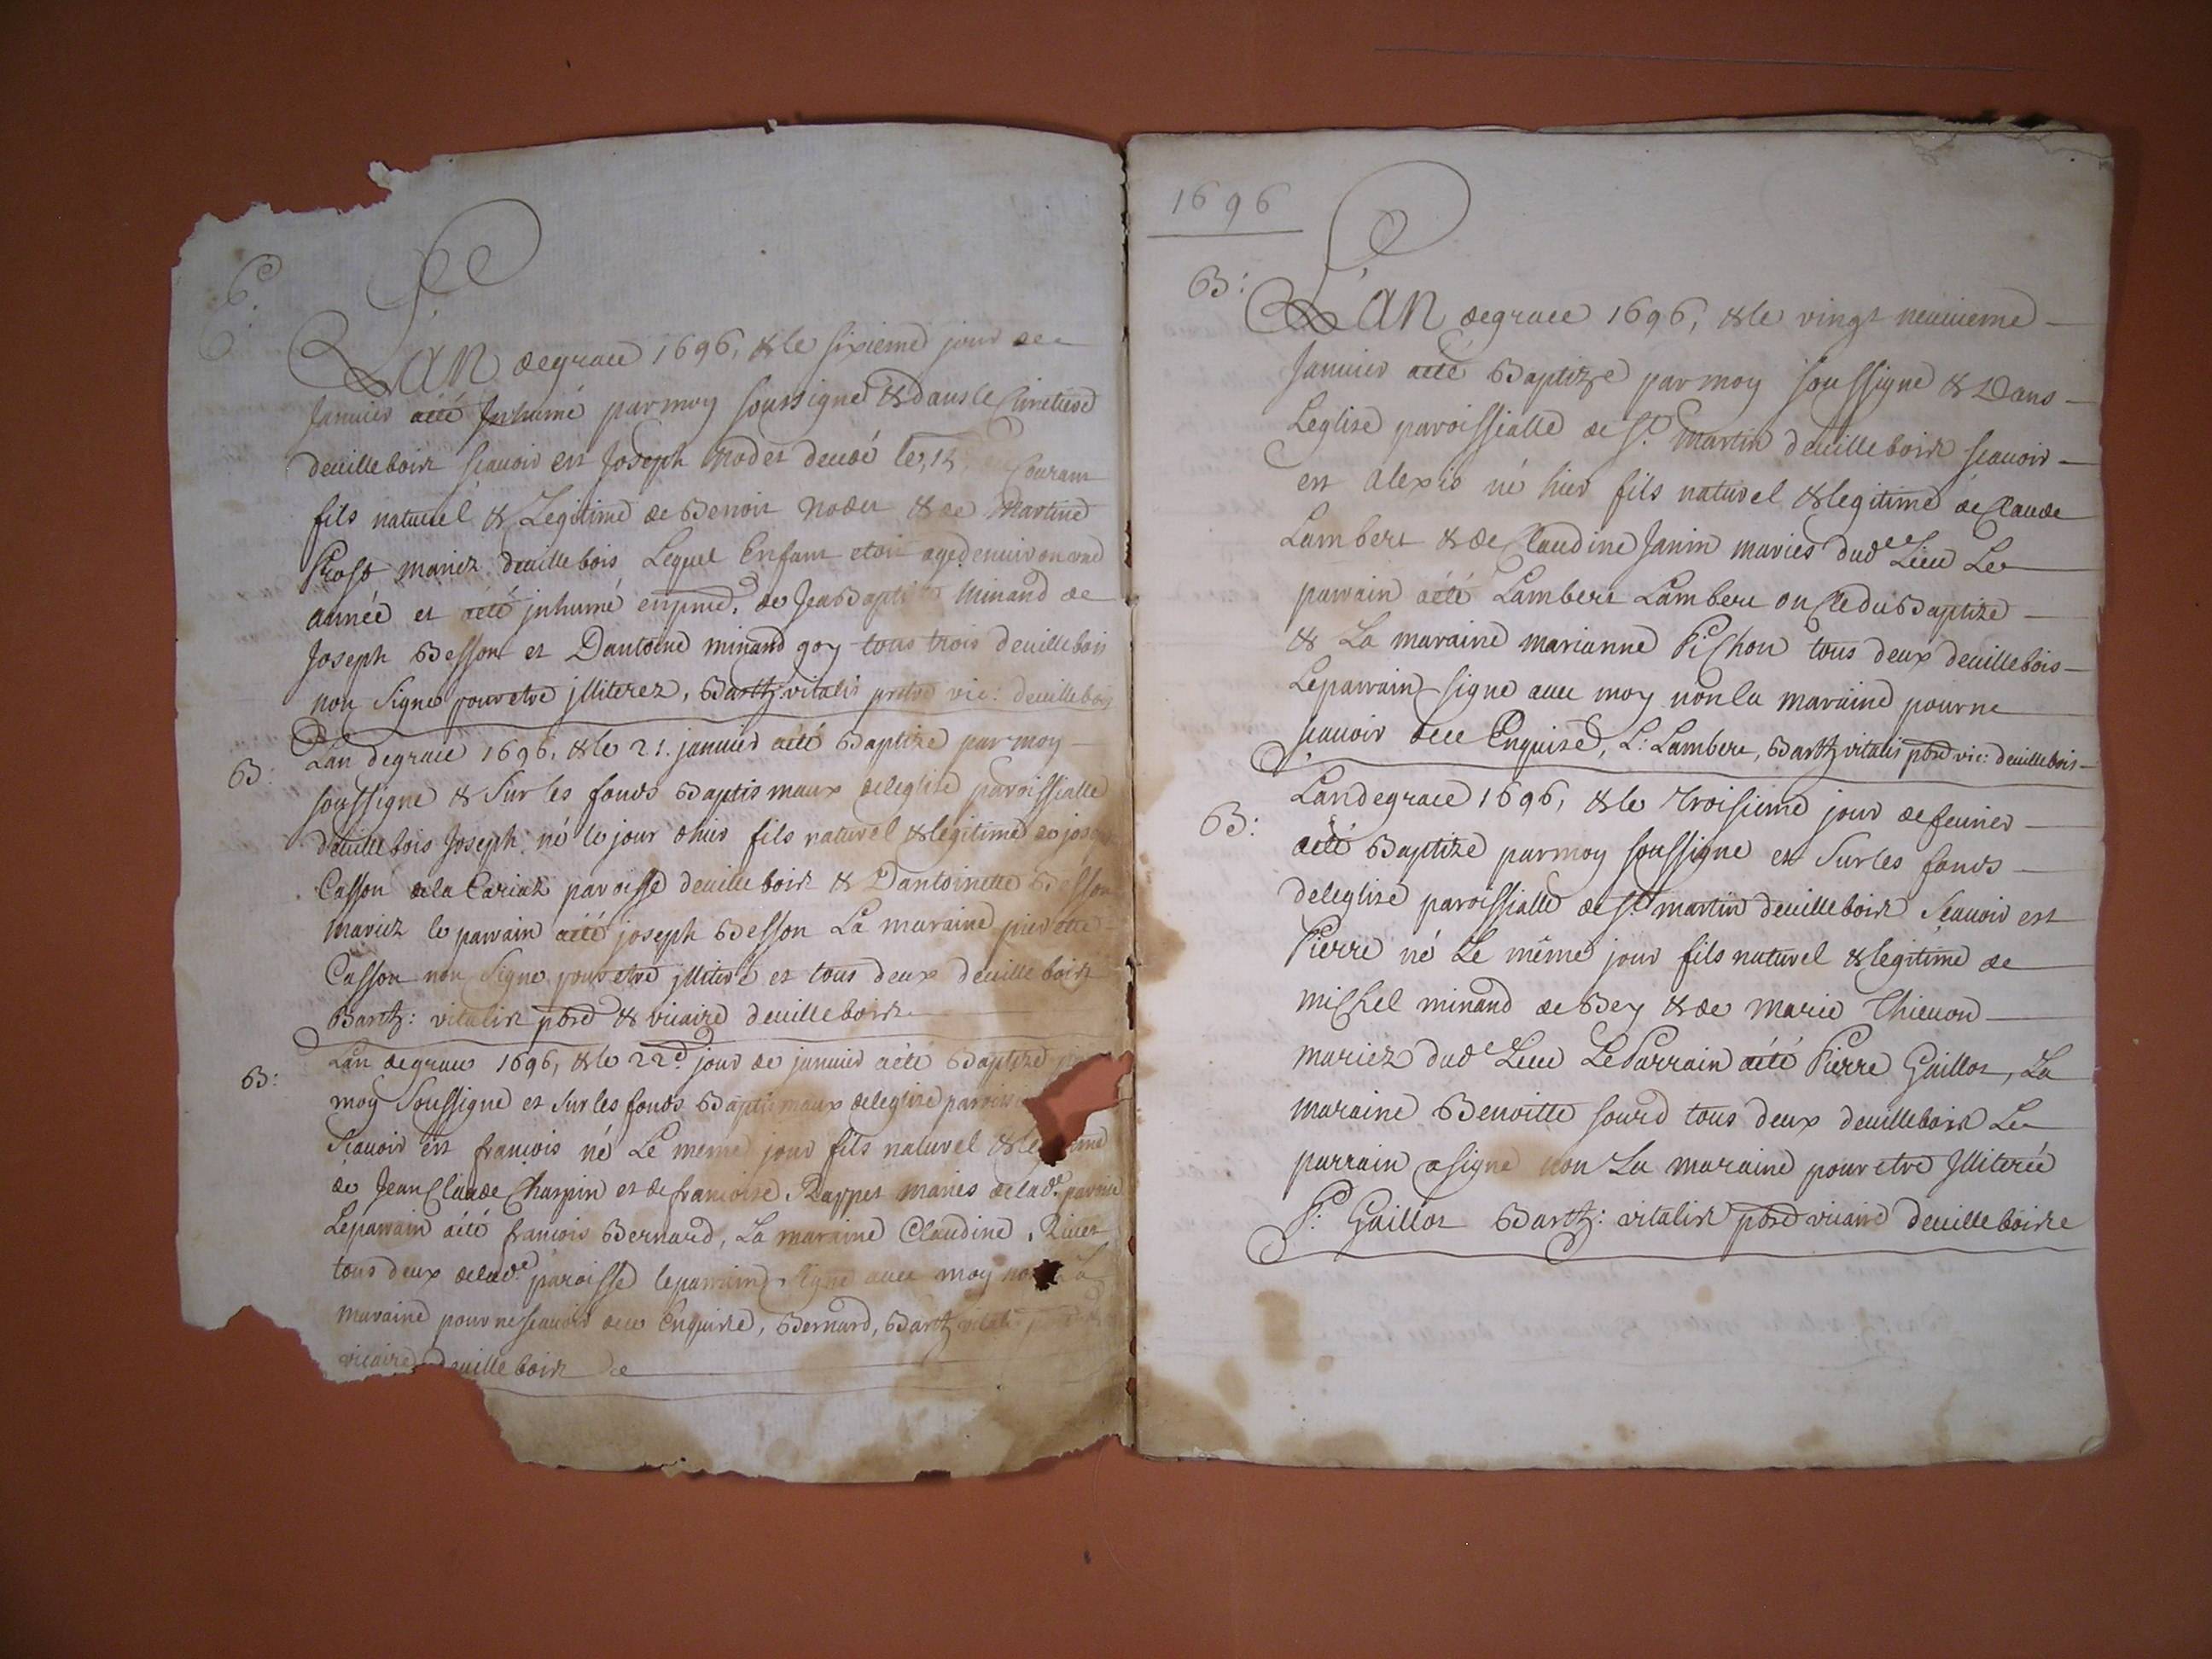 L'AN degrace 1696, & le sixieme jour de
Janvier aété Inhumé parmoy soussigné & dans le Cimetiere
deuilleboix scauoir est Joseph nodet du Courant
fils naturel & Legitime de Benoit Nodet & de Martine
Prost mariez deuillebois Lequel Enfant etoit aged enuiron une
année et aété jnhumé de Minand de
Joseph Besson et Dantoine minand goy tous trois deuillebois
non Signe pour etre jlliterez, Barth vitalis pretre vic: deuillebois
B:
Lan degrace 1696, & le 21. januier aété Baptizé par moy
soussigné & Sur les fonds Baptismaux deleglise paroissialle
deuillebois Joseph né le jour dhier fils naturel & legitime de
Casson dela Cariaz paroisse deuilleboix & Dantoinette Besson
mariez le parrain aété joseph Besson La maraine pierrette
Casson non Signe pour etre jlliteré et tous deux deuilleboix
Barth: vitalix pbre & vicaire deuilleboix
B:
Lan degrace 1696, & le 22e jour de januier aété Baptizé
moy Soussigné et Sur les fonds Baptismaux deleglise
Scauoir est francois né Le meme jour fils naturel &
de Jean Claude Chaspin et de francoise Rappet maries delade paroisse
Leparrain aété francois Bernard, La maraine Claudine Riuet
tous deux delade paroisse leparrain Signe auec moy
maraine pour ne scauoir dece Enquise, Bernard, Barth
vicaire deuilleboix
1696
B:
L'AN degrace 1696, & le vingt neuuieme
Januier aété Baptizé par moy soussigné & Dans
Leglise paroissialle de St. Martin deuilleboix scauoir
est Alexis né hier fils naturel & legitime de Claude
Lambert & de Claudine Janin maries dud Lieu Le
parrain aété Lambert Lambert oncle du Baptizé
& La maraine marianne Pichon tous deux deuillebois
Leparrain signe auec moy non la maraine pour ne
scauoir dece Enquise, L: Lambert, Barth vitalis pbre vic: deuillebois
B:
Lan degrace 1696, & le Troisieme jour de feurier
aété Baptizé par moy soussigné et Sur les fonds
deleglise paroissialle de St. martin deuilleboix Scauoir est
Pierre né Le même jour fils naturel & legitime de
michel minand de Bey & de marie Thieuon
mariez dud Lieu Le Parrain aété Pierre Guillot, La
maraine Benoitte sourd tous deux deuilleboix Le
parrain a signé non La maraine pour etre Jlliterée
P: Guillot Barth: vitalix pbre vicaire deuilleboixe